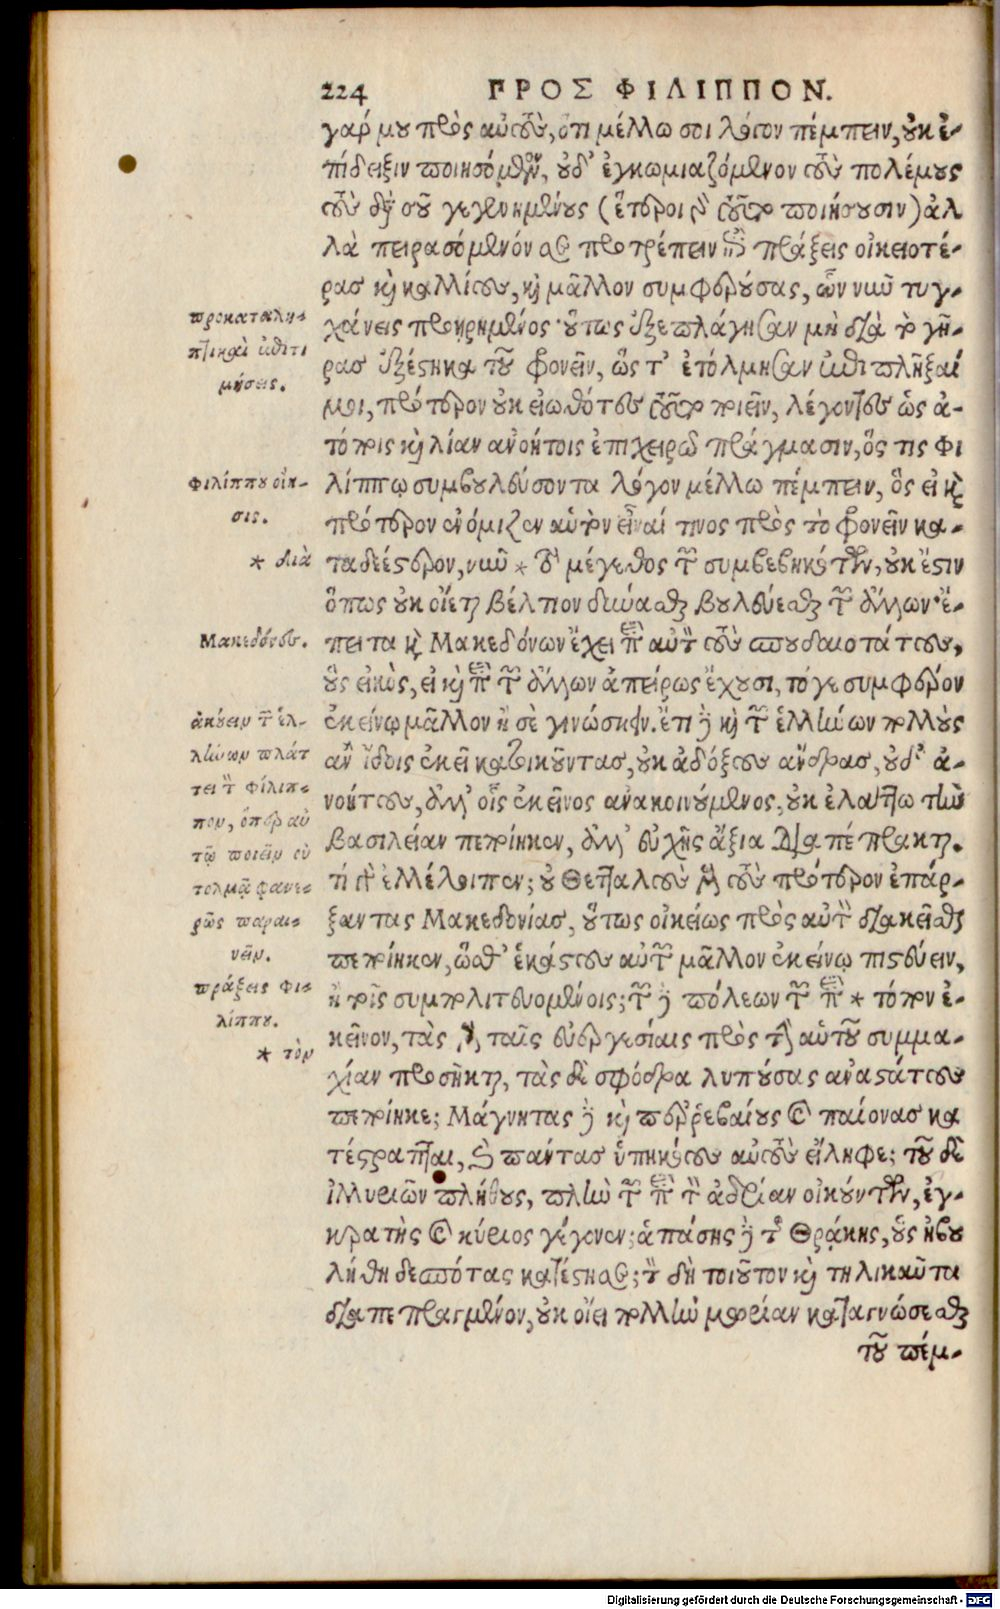 224 ΠΡΟΣ ΦΙΛΙΠΠΟΝ.
γάρ μου πρὸς αὐτοὺς, ὅτι μέλλω σοι λόγον πέμπειν, οὐκ ἐ-
πίδειξιν ποιησόμενον, οὐδ' ἐγκωμιαζόμενον τοὺς πολέμους
τοὺς διὰ σοῦ γεγενημένους (ἕτεροι γὰρ τοῦτο ποιήσουσιν) ἀλ
λὰ πειρασόμενόν σε προτρέπειν ἐπὶ πράξεις οἰκειοτέ-
ρας καὶ καλλίους, καὶ μᾶλλον συμφερούσας, ὧν νῦν τυγ-
χάνεις προῃρημένος· οὕτως ἐξεπλάγησαν μὴ διὰ τὸ γῆ-
ρας ἐξέστηκα τοῦ φρονεῖν, ὥς τ' ἐτόλμησαν ἐπιπλῆξαί
μοι, πρότερον οὐκ εἰωθότες τοῦτο ποιεῖν, λέγοντες ὡς ἀ-
τόποις καὶ λίαν ἀνοήτοις ἐπιχειρῶ πράγμασιν, ὅς τις Φι
λίππῳ συμβουλεύσοντα λόγον μέλλω πέμπειν, ὃς εἰ καὶ
πρότερον ἐνόμιζεν αὑτὸν εἶναί τινος πρὸς τὸ φρονεῖν κα-
ταδεέστερον, νῦν * τὸ μέγεθος τῶν συμβεβηκότων, οὐκ ἔστιν
ὅπως οὐκ οἴεται βέλτιον δύνασθαι βουλεύεσθαι τῶν ἄλλων· ἔ-
πειτα καὶ Μακεδόνων ἔχει περὶ αὑτὸν τοὺς σπουδαιοτάτους,
οὓς εἰκὸς, εἰ καὶ περὶ τῶν ἄλλων ἀπείρως ἔχουσι, τό γε συμφέρον
ἐκείνῳ μᾶλλον ἢ σὲ γινώσκειν. ἔτι δὲ καὶ τῶν ἑλλήνων πολλοὺς
ἂν ἴδοις ἐκεῖ κατοικοῦντας, οὐκ ἀδόξους ἄνδρας, οὐδ' ἀ-
νοήτους, ἀλλ' οἷς ἐκεῖνος ἀνακοινούμενος, οὐκ ἐλάττω τὴν
βασιλείαν πεποίηκεν, ἀλλ' εὐχῆς ἄξια διαπέπρακται.
τί γὰρ ἐλλέλοιπεν; οὐ Θετταλοὺς μὲν τοὺς πρότερον ἐπάρ-
ξαντας Μακεδονίας, οὕτως οἰκείως πρὸς αὑτὸν διακεῖσθαι
πεποίηκεν, ὥσθ' ἑκάστους αὐτῶν μᾶλλον ἐκείνῳ πιστεύειν,
ἢ τοῖς συμπολιτευομένοις; τῶν δὲ πόλεων τῶν περὶ * τόπον ἐ-
κεῖνον, τὰς μὲν ταῖς εὐεργεσίαις πρὸς τὴν αὑτοῦ συμμα-
χίαν προσῆκται, τὰς δὲ σφόδρα λυπούσας ἀναστάτους
πεποίηκε; Μάγνητας δὲ καὶ περρεβαίους καὶ παίονας κα
τέστραπται, καὶ πάντας ὑπηκόους αὐτοὺς εἴληφε; τοῦ δὲ
ἰλλυριῶν πλήθους, πλὴν τῶν περὶ τὸν ἀδρίαν οἰκούντων, ἐγ-
κρατὴς καὶ κύριος γέγονεν; ἁπάσης δὲ τῆς Θρᾴκης, οὓς ἠβου
λήθη δεσπότας κατέστησε; τὸν δὴ τοιοῦτον καὶ τηλικαῦτα
διαπεπραγμένον, οὐκ οἴει πολλὴν μωρίαν καταγνώσεσθαι
τοῦ πέμ-
προκαταλη-
πτικαὶ ἐπιτι
μήσεις.
Φιλίππου οἴη-
σις.
* διὰ
Μακεδόνες.
ἀκούειν τῶν ἑλ-
λήνων πλάτ
τει τὸν Φίλιπ-
πον, ὅπερ αὐ
τῷ ποιεῖν οὐ
τολμᾷ φανε-
ρῶς παραι-
νεῖν.
πράξεις Φι-
λίππου.
* τὸν
Digitalisierung gefördert durch die Deutsche Forschungsgemeinschaft - DFG